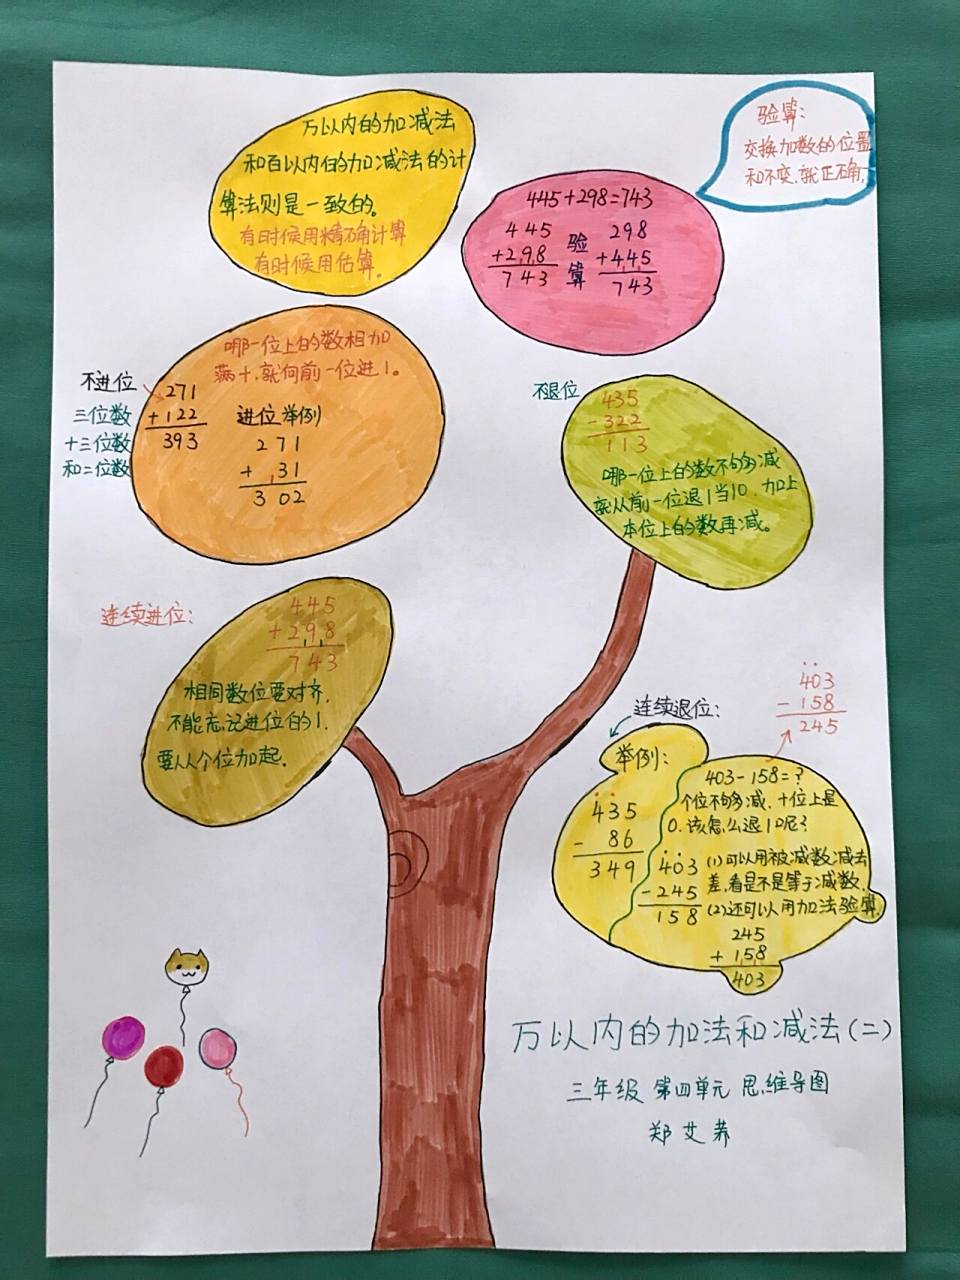 万以内的加减法
和百以内的加减法的计
算法则是一致的。
有时候用精确计算
有时候用估算。
验算:
交换加数的位置
和不变.就正确.
445+298=743
445
+298
743
验算
298
+445
743
哪一位上的数相加
满十,就向前一位进1。
不进位
三位数
十三位数
和二位数
271
+122
393
进位举例
271
+ 31
302
不退位
435
-322
113
哪一位上的数不够减
就从前一位退1当10.加上
本位上的数再减。
连续进位:
445
+298
743
相同数位要对齐.
不能忘记进位的1.
要从个位加起.
连续退位:
403
-158
245
举例:
435
- 86
349
403-158=?
个位不够减.十位上是
0.该怎么退1呢?
403
-245
158
(1)可以用被减数减去
差,看是不是等于减数.
(2)还可以用加法验算.
245
+158
403
万以内的加法和减法(二)
三年级 第四单元 思维导图
郑艾